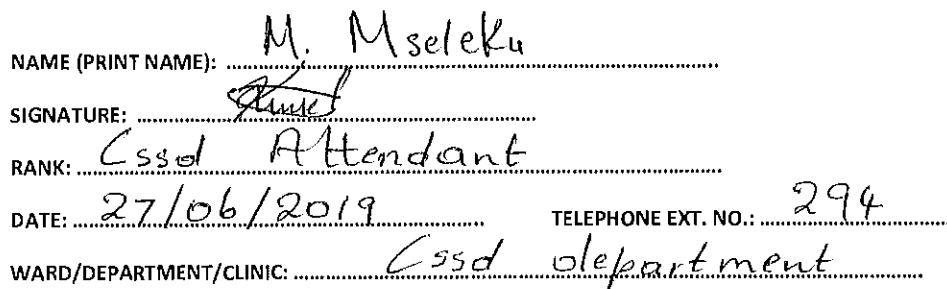 NAME (PRINT NAME): M. Mseleku
SIGNATURE:
RANK: Cssd Attendant
DATE: 27/06/2019 TELEPHONE EXT. NO.: 294
WARD/DEPARTMENT/CLINIC: Cssd department